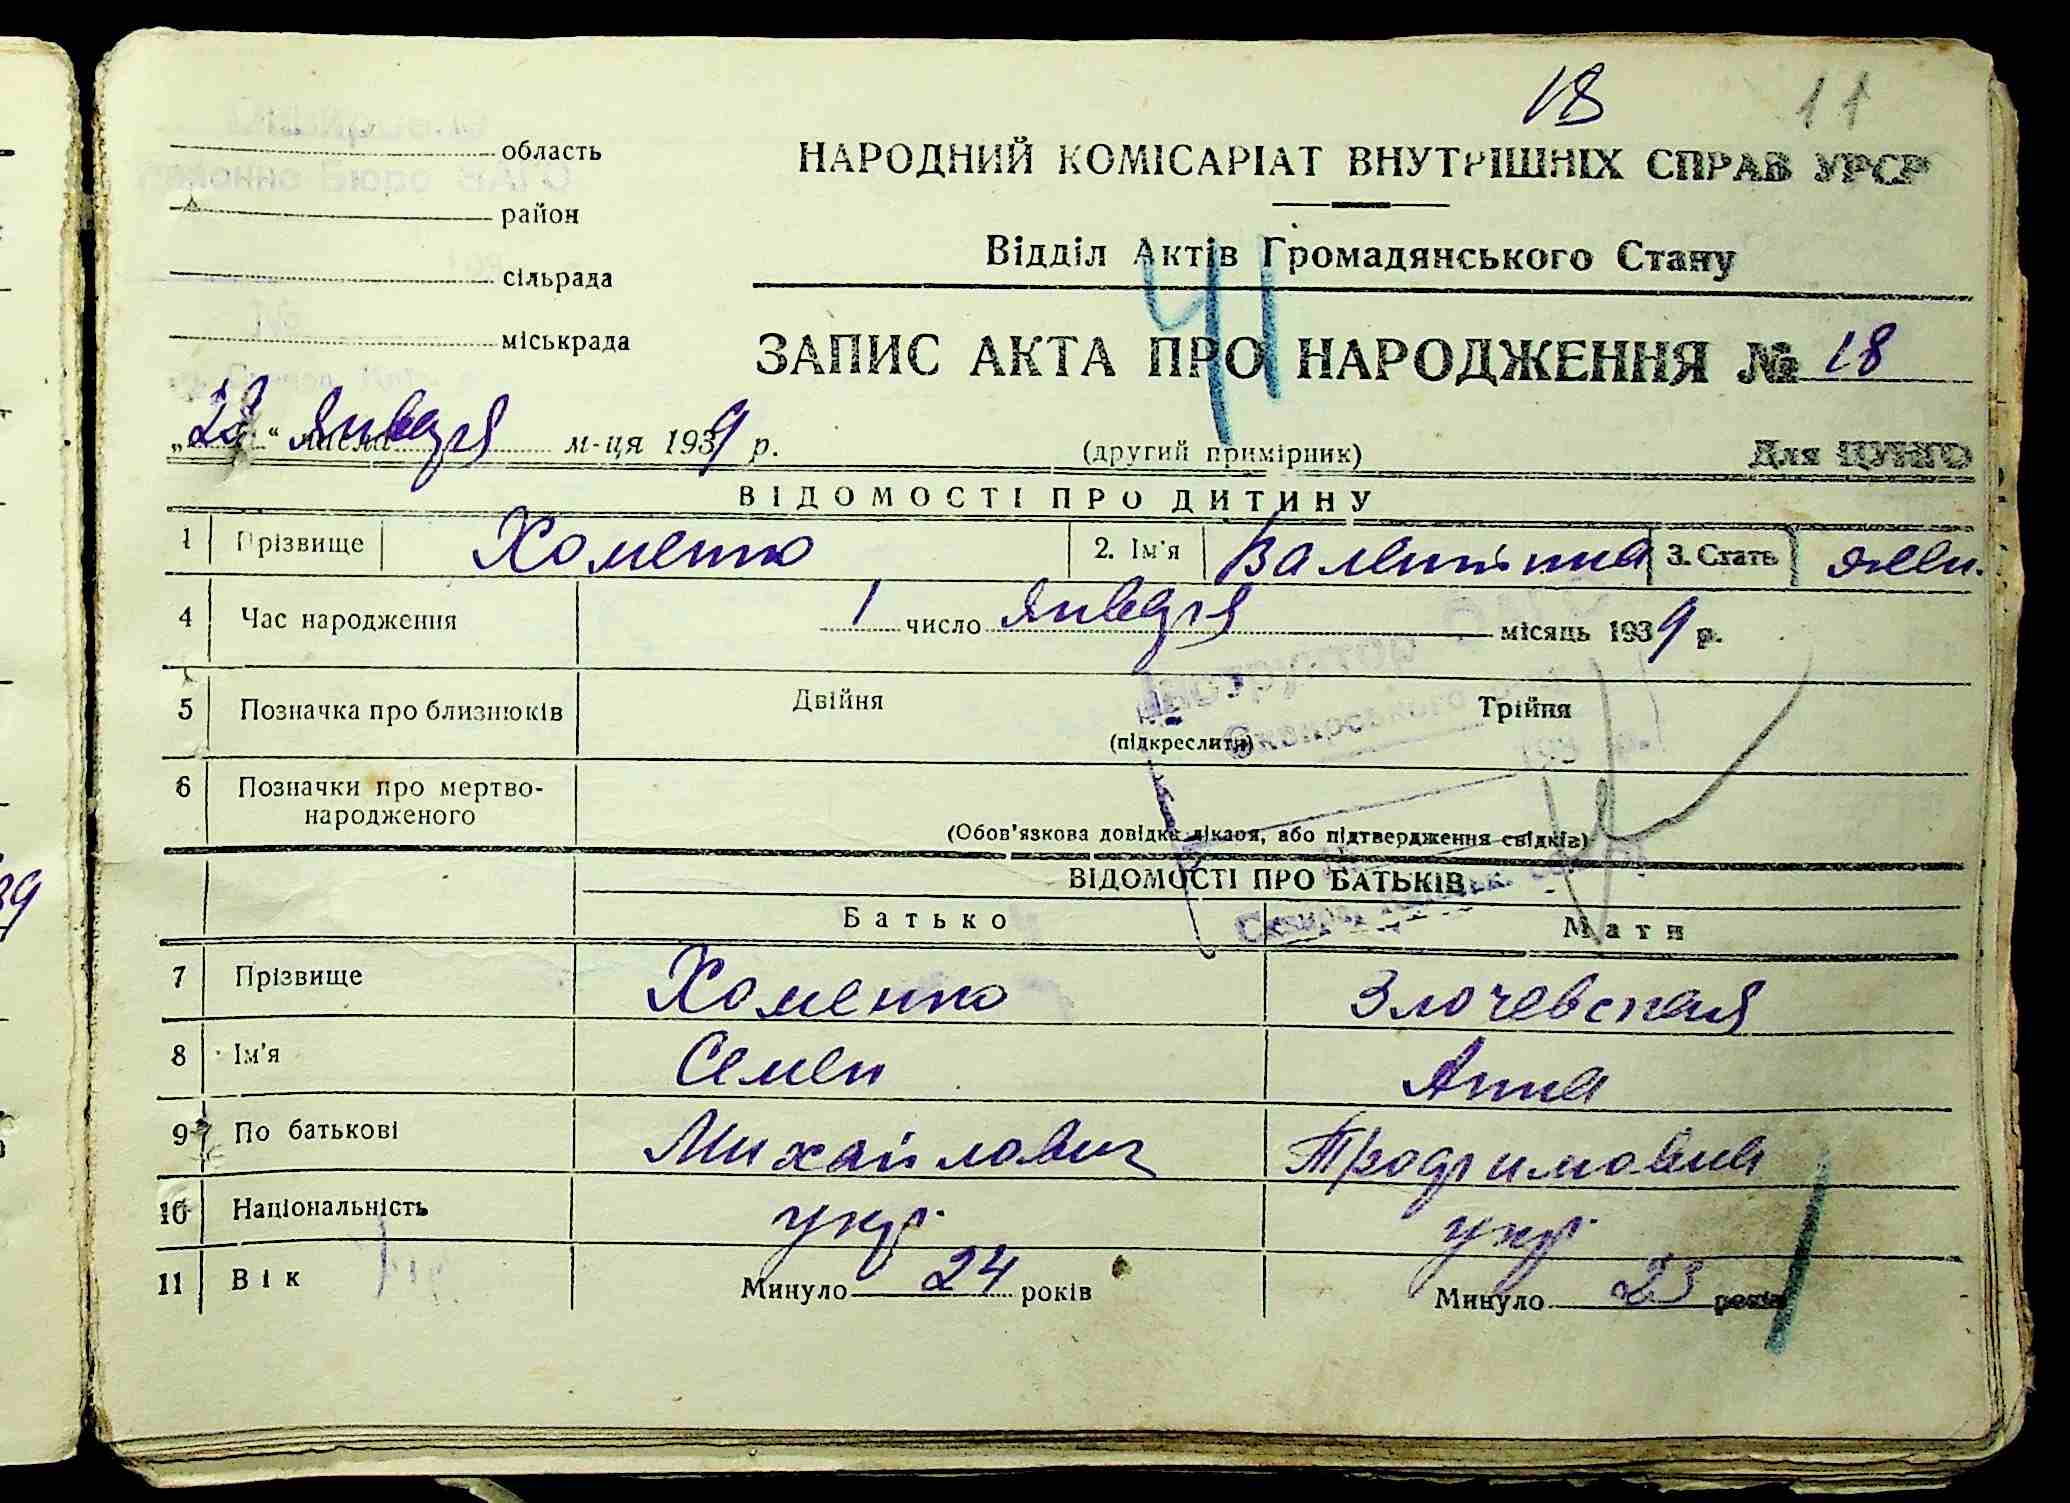 18 11
область
район
сільрада
міськрада
НАРОДНИЙ КОМІСАРІАТ ВНУТРІШНІХ СПРАВ УРСР
Відділ Актів Громадянського Стану
41
ЗАПИС АКТА ПРО НАРОДЖЕННЯ № 18
„ “ числа января м-ця 1939 р.
(другий примірник) Для ЦУНГО
ВІДОМОСТІ ПРО ДИТИНУ
1 Прізвище Хоменко 2. Ім'я Валентина 3. Стать жен.
4 Час народження 1 число января місяць 1939 р.
5 Позначка про близнюків Двійня Трійня
(підкреслити)
6 Позначки про мертво-
народженого
(Обов'язкова довідка лікаря, або підтвердження свідків)
ВІДОМОСТІ ПРО БАТЬКІВ
Батько Мати
7 Прізвище Хоменко Злочевская
8 Ім'я Семен Анна
9 По батькові Михайлович Трофимовна
10 Національність укр. укр.
11 Вік Минуло 24 років Минуло 23 років
39